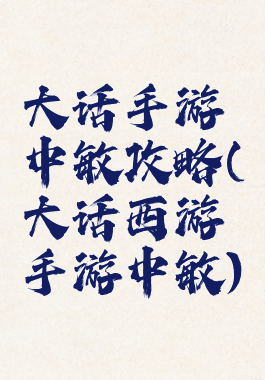 大话手游
中敏攻略(
大话西游
手游中敏)